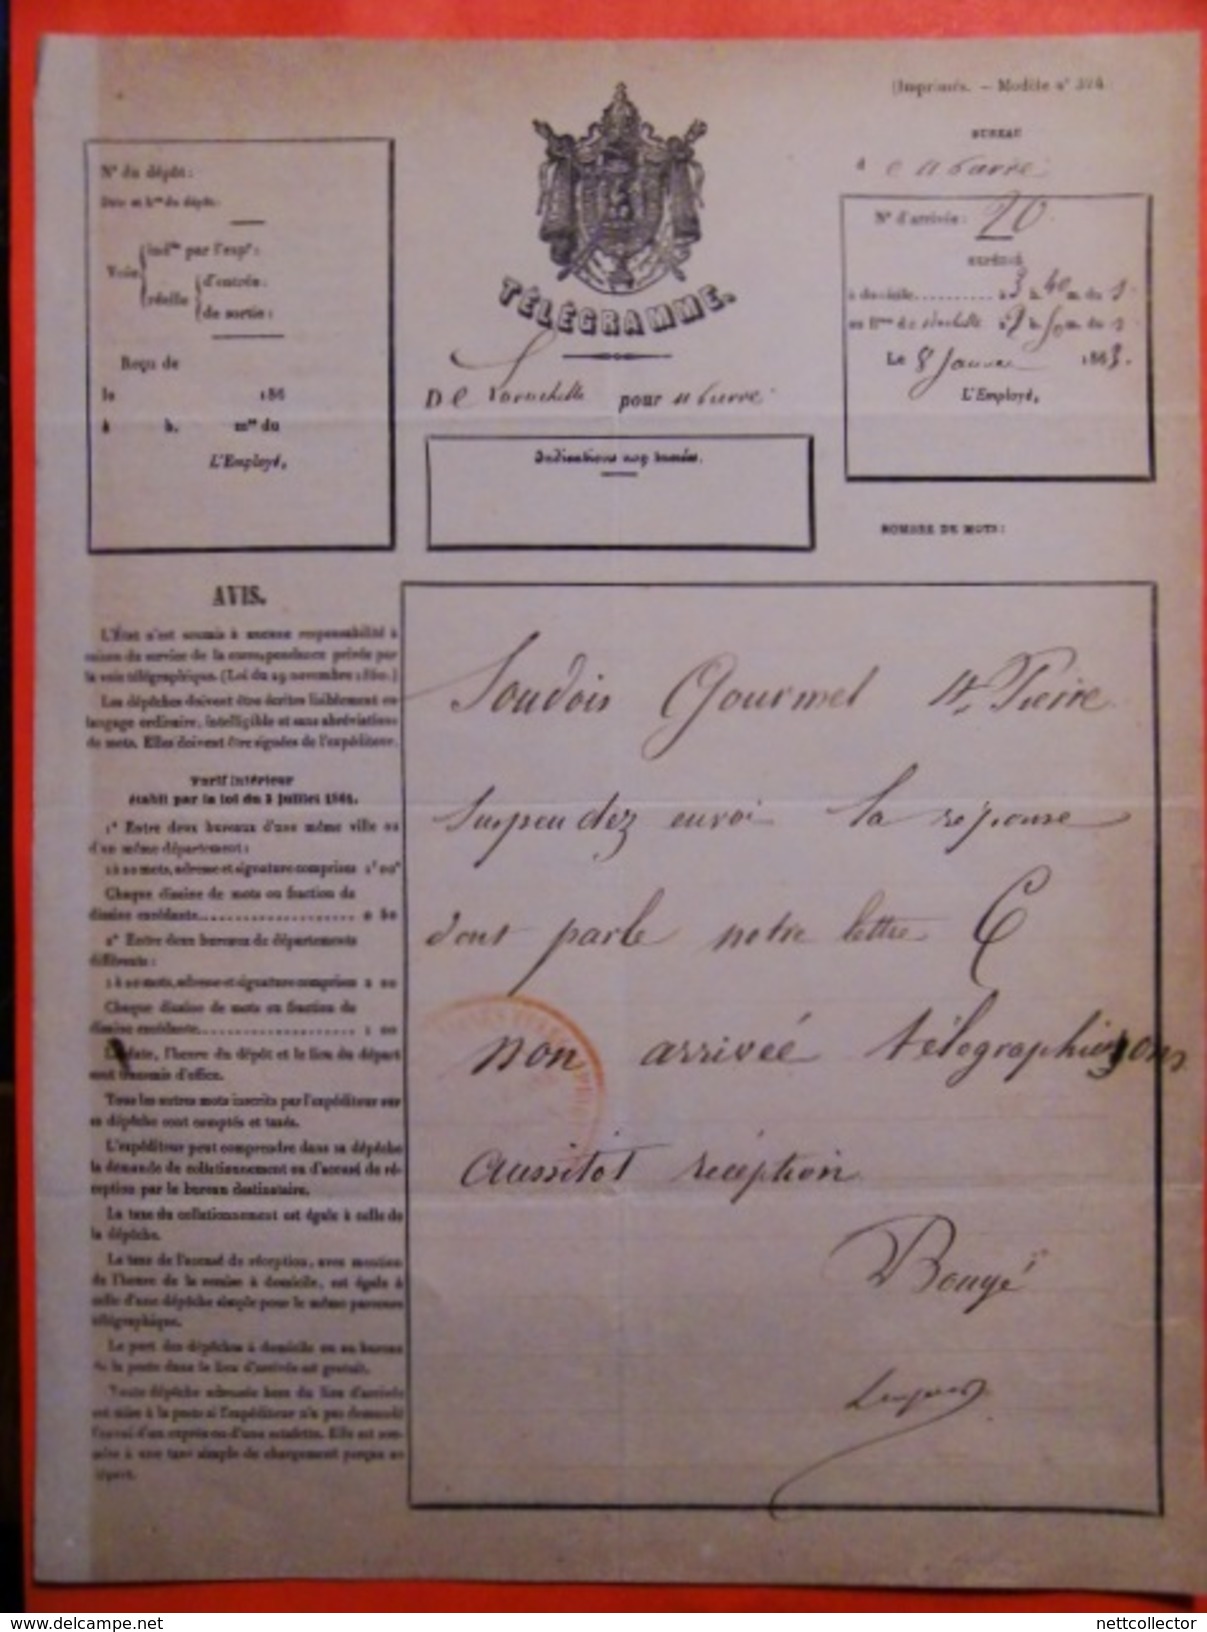 (Imprimés. — Modèle n° 374
BUREAU
à
N° d'arrivée: 20
EXPÉDIÉ
à domicile.......... à 3 h. 40 m. du s
m. du s
Le 8 Janvier 1863.
L'Employé,
N° du dépôt:
Date et h.re du dépôt:
Voie
ind.ée par l'exp.r:
réelle
d'entrée:
de sortie:
Reçu de
le 186
à h. m.es du
L'Employé,
TÉLÉGRAMME.
De Larochelle pour
Indications non taxées.
NOMBRE DE MOTS:
AVIS.
L'État n'est soumis à aucune responsabilité à
raison du service de la correspondance privée par
la voie télégraphique. (Loi du 29 novembre 1850.)
Les dépêches doivent être écrites lisiblement en
langage ordinaire, intelligible et sans abréviations
de mots. Elles doivent être signées de l'expéditeur.
Tarif intérieur
établi par la loi du 3 juillet 1861.
1° Entre deux bureaux d'une même ville ou
d'un même département:
1 à 20 mots, adresse et signature comprises 1f 00c
Chaque dizaine de mots ou fraction de
dizaine excédante.................... 0 50
2° Entre deux bureaux de départements
différents:
1 à 20 mots, adresse et signature comprises 2 00
Chaque dizaine de mots ou fraction de
dizaine excédante.................... 1 00
La date, l'heure du dépôt et le lieu du départ
sont transmis d'office.
Tous les autres mots inscrits par l'expéditeur sur
sa dépêche sont comptés et taxés.
L'expéditeur peut comprendre dans sa dépêche
la demande de collationnement ou d'accusé de ré-
ception par le bureau destinataire.
La taxe du collationnement est égale à celle de
la dépêche.
La taxe de l'accusé de réception, avec mention
de l'heure de la remise à domicile, est égale à
celle d'une dépêche simple pour le même parcours
télégraphique.
Le port des dépêches à domicile ou au bureau
de la poste dans le lieu d'arrivée est gratuit.
Toute dépêche adressée hors du lieu d'arrivée
est mise à la poste si l'expéditeur n'a pas demandé
l'envoi d'un exprès ou d'une estafette. Elle est sou-
mise à une taxe simple de chargement perçue au
départ.
Soudois Gourmel St. Pierre
Suspendez envoi la réponse
dont parle notre lettre C
non arrivée télégraphierons
aussitot réception
Bougé
nettcollector
delcampe.net